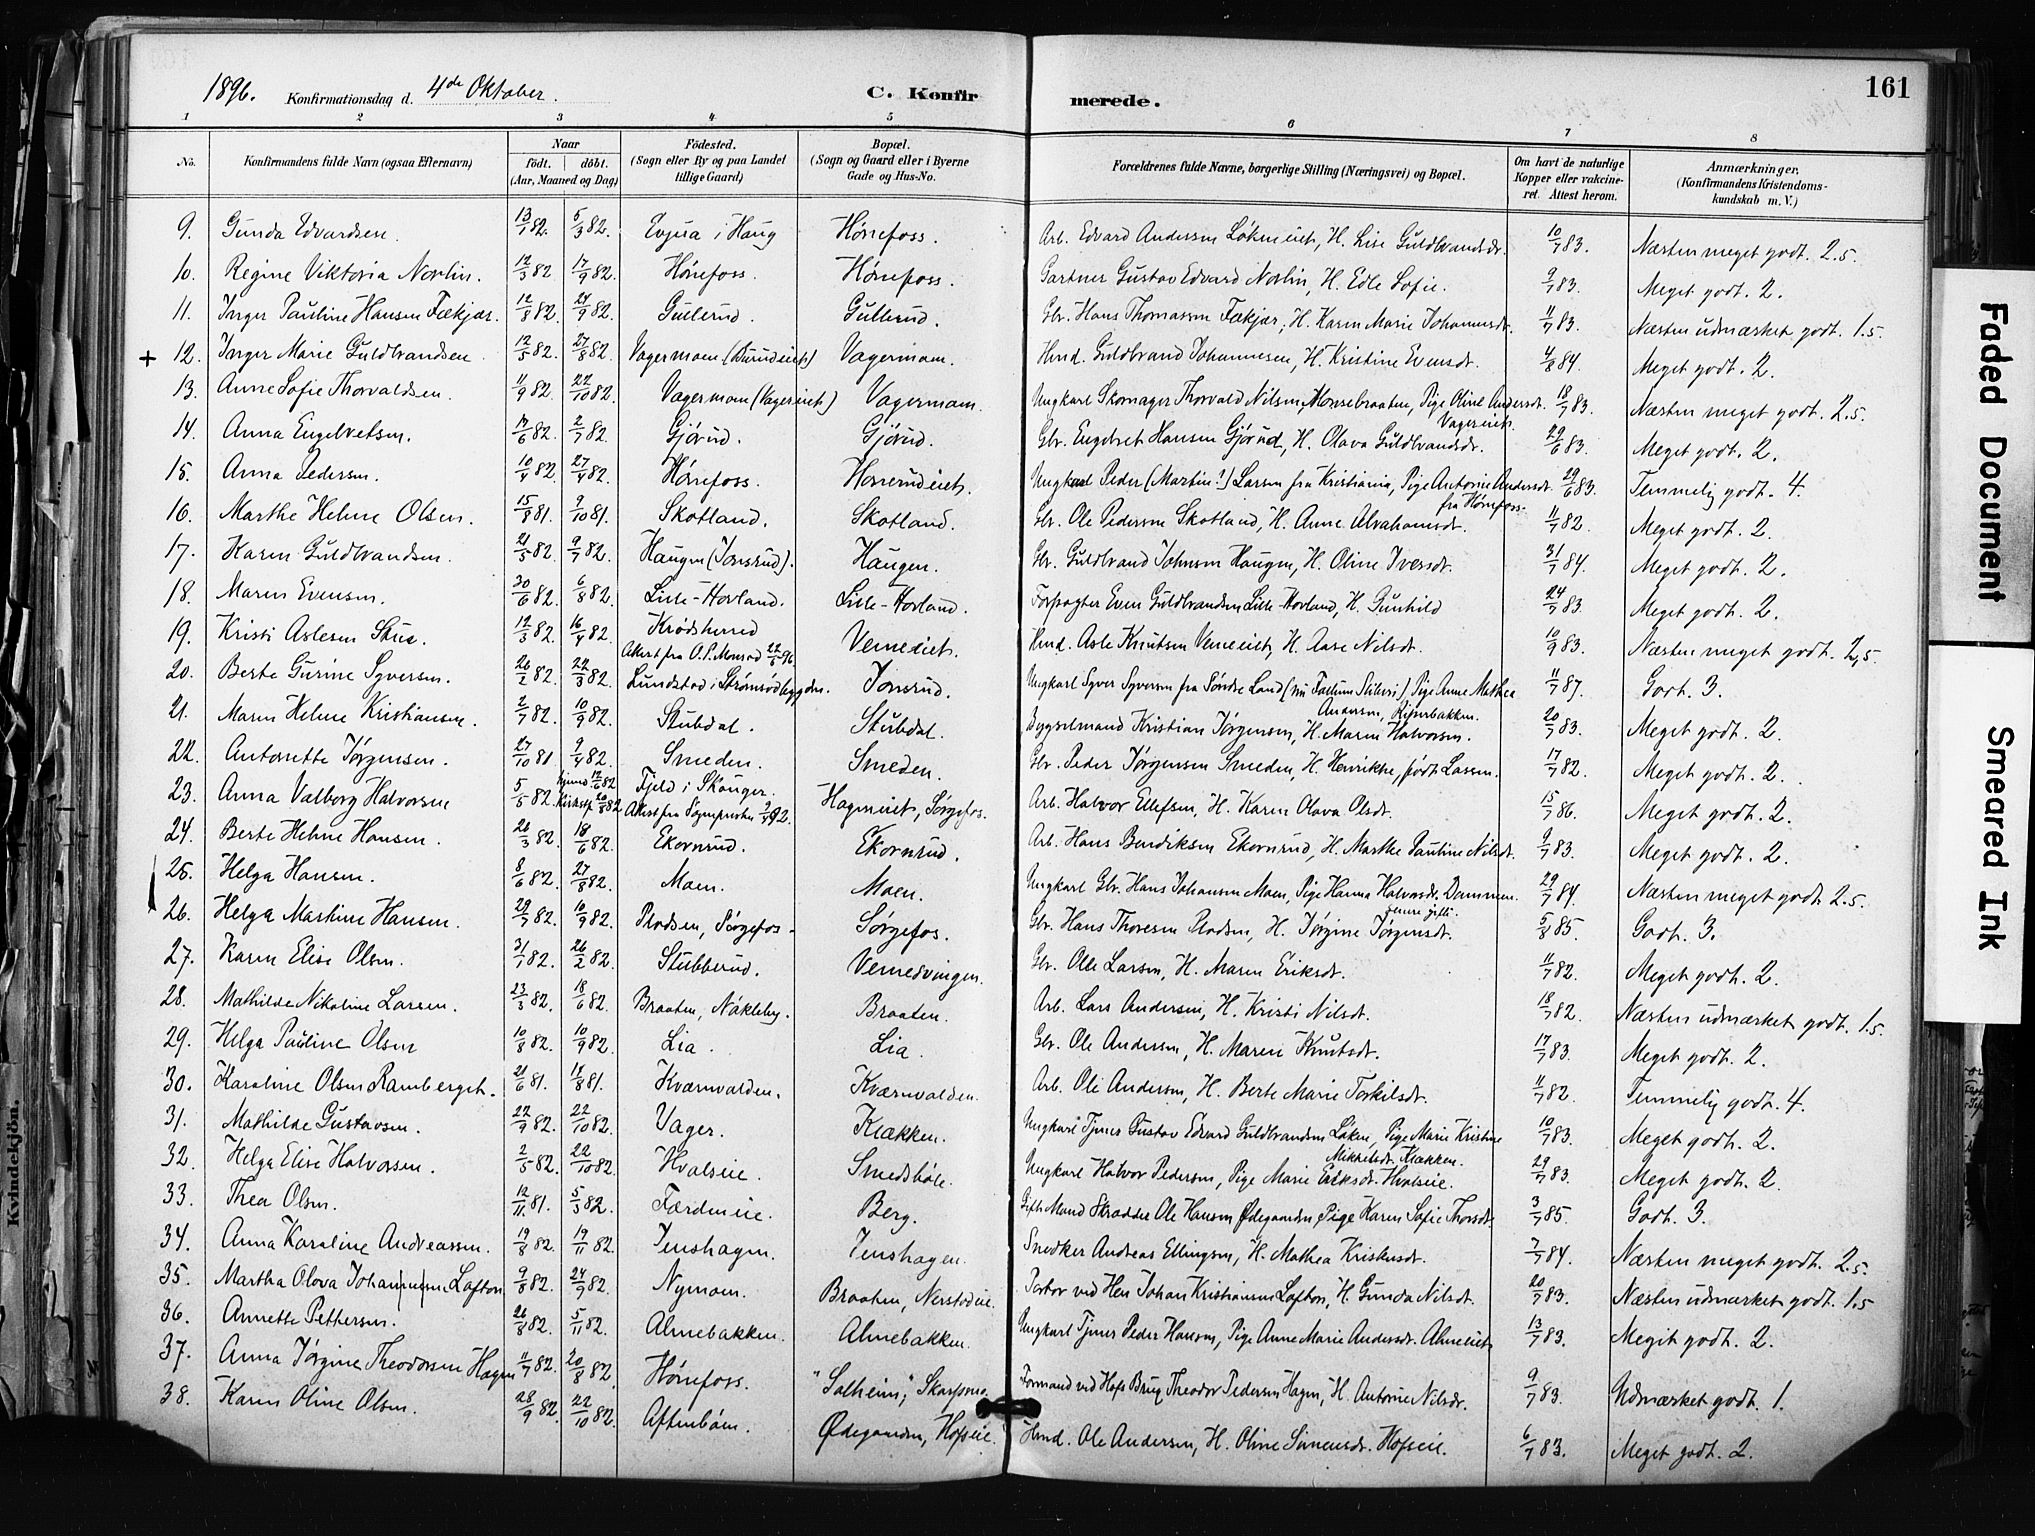 1896. Konfirmationsdag d. 4de Oktober. C. Konfirmerede. 161
1 2 3 4 5 6 7 8
No. Konfirmandens fulde Navn (ogsaa Efternavn) Naar født. døbt. (Aar, Maaned og Dag) Fødested. (Sogn eller By og paa Landet tillige Gaard) Bopæl. (Sogn og Gaard eller i Byerne Gade og Hus-No. Forældrenes fulde Navne, borgerlige Stilling (Næringsvei) og Bopæl. Om havt de naturlige Kopper eller vakcineret. Attest herom. Anmærkninger. (Konfirmandens Kristendomskundskab m. V.)
9. Gunda Edvardsen. 13/1 82. 5/3 82. i Haug Hønefoss. Arb. Edvard Andersen Løkeneiet, H. Lise Guldbrandsdr. 10/7 83. Næsten meget godt. 2.5.
10. Regine Viktoria Norlin. 12/3 82 17/9 82. Hønefoss. Hønefoss. Gartner Gustav Edvard Norlin, H. Edle Sofie. 9/7 83. Meget godt. 2.
11. Inger Pauline Hansen Fækjær. 12/8 82. 24/9 82. Gullerud. Gullerud. Gbr. Hans Thomassen Fækjær, H. Karen Marie Johannesdr. 11/7 83. Næsten udmærket godt. 1.5.
+ 12. Inger Marie Guldbrandsen 12/5 82. 27/8 82. Vagermoen Vagermoen. Hmd. Guldbrand Johannesen, H. Kristine Evensdt. 4/8 84. Meget godt. 2.
13. Anne Sofie Thorvaldsen. 11/9 82. 22/10 82. Vagermoen (Vagereiet) Vagermoen. Ungkarl Skomager Thorvald Nilsen, Monsebraaten, Pige Oline Andersdt. Vagereiet. 18/7 83. Næsten meget godt. 2.5.
14. Anna Engebretsen. 17/6 82. 2/7 82. Gjørud. Gjørud. Gbr. Engebret Hansen Gjørud, H. Olava Guldbrandsdr. 29/6 83. Meget godt. 2.
15. Anna Pedersen. 10/4 82. 27/4 82. Hønefoss. Honerudeiet. Ungkarl Peder (Martin?) Larsen fra Kristiania, Pige Antonie Andersdt. fra Hønefoss. 29/6 83. Temmelig godt. 4.
16. Marthe Helene Olsen. 15/8 81. 9/10 81. Skotland. Skotland. Gbr. Ole Pedersen Skotland, H. Anne Abrahamsdr. 11/7 82. Meget godt. 2.
17. Karen Guldbrandsen. 21/5 82. 9/7 82. Haugen (Jonsrud). Haugen. Gbr. Guldbrand Johnsen Haugen, H. Oline Iversdt. 31/7 84. Meget godt. 2.
18. Maren Evensen. 30/6 82. 6/8 82. Lille-Hovland. Lille-Hovland. Forpagter Even Guldbrandsen Lille-Hovland, H. Gunhild 24/7 83. Meget godt. 2.
19. Kristi Aslesen 12/3 82. 16/4 82. Krødsherred Attest fra O. P. Monrad 22/5 96. Vemeeiet. Hmd. Asle Knutsen Vemeeiet, H. Aase Nilsdt. 10/9 83. Næsten meget godt. 2,5.
20. Berte Gurine Syversen. 26/2 82. 22/3 82. Lundstad i Strømsødbygden. Jonsrud. Ungkarl Syver Syversen fra Søndre Land Pige Anne Mathea Andersen, Ripserbakken. 11/7 87. Godt. 3.
21. Maren Helene Kristiansen. 2/7 82. 10/9 82. Stubdal. Stubdal. Bygselmand Kristian Jørgensen, H. Maren Halvorsen. 20/7 83. Meget godt. 2.
22. Antonette Jørgensen. 27/10 81 9/4 82. Smeden. Smeden. Gbr. Peder Jørgensen Smeden, H. Henrikke, født Larsen. 17/7 82. Meget godt. 2.
23. Anna Valborg Halvorsen 5/5 82. hjemd. 12/6 82 Kirkestf. 20/8 82. Fjeld i Skouger. Attest fra Sognepresten Hageneiet, Sørgefos. Arb. Halvor Ellefsen, H. Karen Olava Olsdt. 15/7 86. Meget godt. 2.
24. Berte Helene Hansen. 26/3 82. 18/6 82. Ekornrud. Ekornrud. Arb. Hans Bendiksen Ekornrud, H. Marthe Pauline Nilsdt. 9/7 83. Meget godt. 2.
25. Helga Hansen. 8/6 82. 27/8 82. Moen. Moen. Ungkarl Gbr. Hans Johansen Moen, Pige Hanna Halvorsdt. Dammen. senere gifte. 29/7 84. Næsten meget godt. 2.5.
26. Helga Martine Hansen. 29/7 82. 10/9 82. Plodsen, Sørgefos. Sørgefos. Gbr. Hans Thoresen Plodsen, H. Jørgine Jørgensdt. 5/8 85. Godt. 3.
27. Karen Elise Olsen. 31/1 82. 26/2 82. Stubberud. Vemesvingen. Gbr. Olle Larsen, H. Maren Eriksdt. 11/7 82. Meget godt. 2.
28. Mathilde Nikoline Larsen. 23/3 82. 18/6 82. Braaten, Nakleby. Braaten. Arb. Lars Andersen, H. Kristi Nilsdt. 18/7 82. Næsten udmærket godt. 1.5.
29. Helga Pauline Olsen 10/8 82. 10/9 82. Lia. Lia. Gbr. Ole Andersen, H. Maren Knutsdt. 17/7 83. Meget godt. 2.
30. Karoline Olsen Ramberget. 21/6 81. 14/8 81. Kværnvolden. Kværnvolden. Arb. Ole Andersen, H. Berte Marie Torkilsdt. 11/7 82. Temmelig godt. 4.
31. Mathilde Gustavsen. 22/9 82. 22/10 82. Vager. Klækken. Ungkarl Tjener Gustav Edvard Guldbrandsen Løken, Pige Marie Kristine Mikkelsdt. Klækken. 10/7 83. Meget godt. 2.
32. Helga Elise Halvorsen. 2/5 82. 22/10 82. Hvalseie. Smedsbøle. Ungkarl Halvor Pedersen, Pige Marie Eriksdt. Hvalseie. 29/7 83. Meget godt. 2.
33. Thea Olsen. 12/11 81. 5/3 82. Færdeneie. Berg. Gift Mand Skrædder Ole Hansen Ødegaarden, Pige Karen Sofie Thorsdt. 3/7 85. Godt. 3.
34. Anna Karoline Andreassen. 19/8 82. 19/11 82. Jenshagen. Jenshagen. Snedker Andreas Ellingsen, H. Mathea Kristensdt. 7/7 84. Næsten meget godt. 2.5.
35. Martha Olova Johannesen Lofton 9/8 82. 24/9 82. Nymoen. Braaten, Nerstadeie. ved Hen Johan Kristiansen Lofton, H. Gunda Nilsdt. 20/7 83. Næsten udmærket godt. 1.5
36. Annette Pettersen. 26/8 82. 5/11 82. Almebakken. Almebakken. Ungkarl Tjener Peder Hansen, Pige Anne Marie Andersdt. Almeeiet 13/7 83. Meget godt. 2.
37. Anna Jørgine Theodorsen Hagen 11/7 82. 20/8 82. Hønefoss. "Solheim", Skarpsno. Formand ved Hofs Brug Theodor Pedersen Hagen, H. Antonie Nilsdr. 9/7 83. Udmærket godt. 1.
38. Karen Oline Olsen. 28/9 82. 22/10 82. Aftenbøen. Ødegaarden, Hofseie. Hmd. Ole Andersen, H. Oline Simensdt. Hofseie. 6/7 83. Meget godt. 2.
Kvindekjön.
Faded Document
Smeared Ink